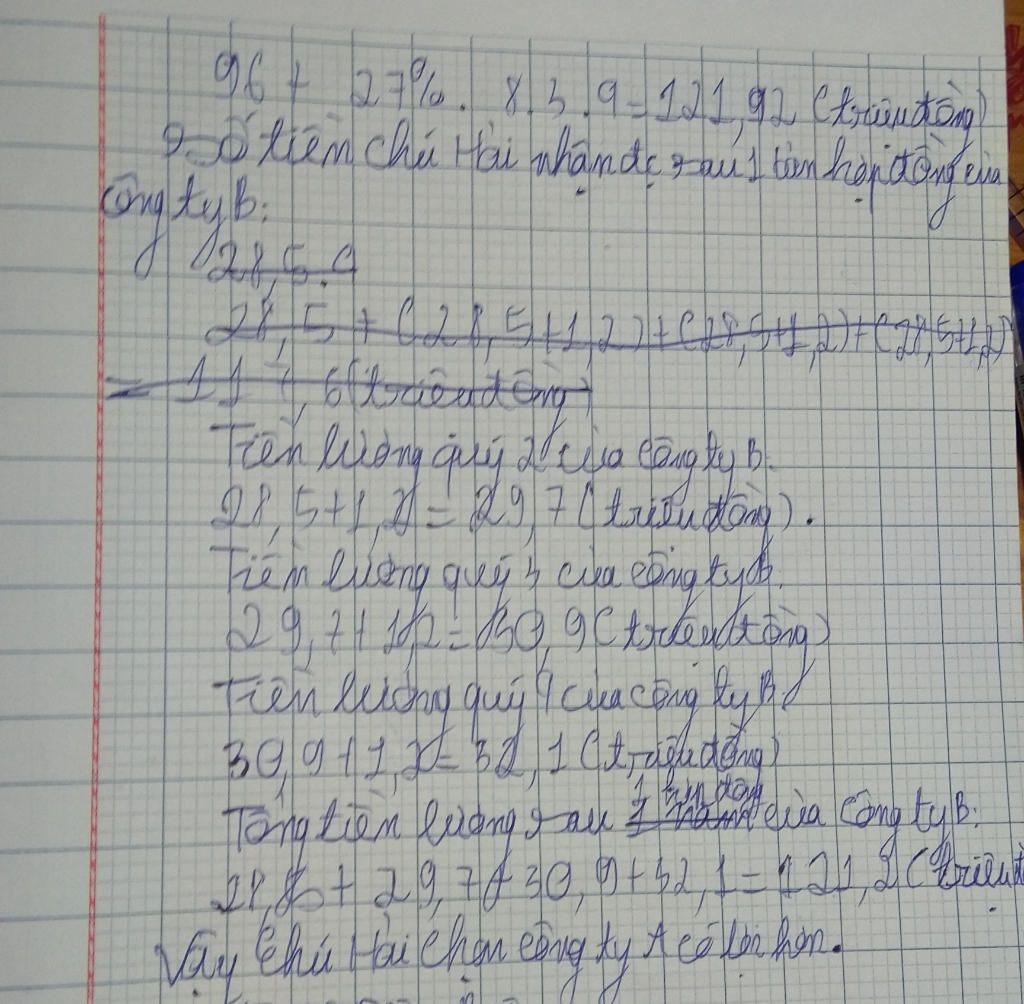 96 + 27%. 8.3.4=121,92 (triệu đồng)
Số tiền chú Hải nhận đc sau 1 lần hợp đồng của
công ty B:
28,5.4
28,5+(28,5+1,2)+(28,5+1,2)+(28,5+1,2)
= 117,6(triệu đồng)
Tiền lương quý 2 của công ty B:
28,5+1,2=29,7(triệu đồng).
Tiền lương quý 3 của công ty B.
29,7+1,2=30,9(triệu đồng)
Tiền lương quý 4 của công ty B
30,9+1,2=32,1(triệu đồng)
Tổng tiền lương sau 1 năm của công ty B:
28,5+29,7+30,9+32,1=121,2(triệu
Vậy Chú Hải chọn công ty A có lợi hơn.